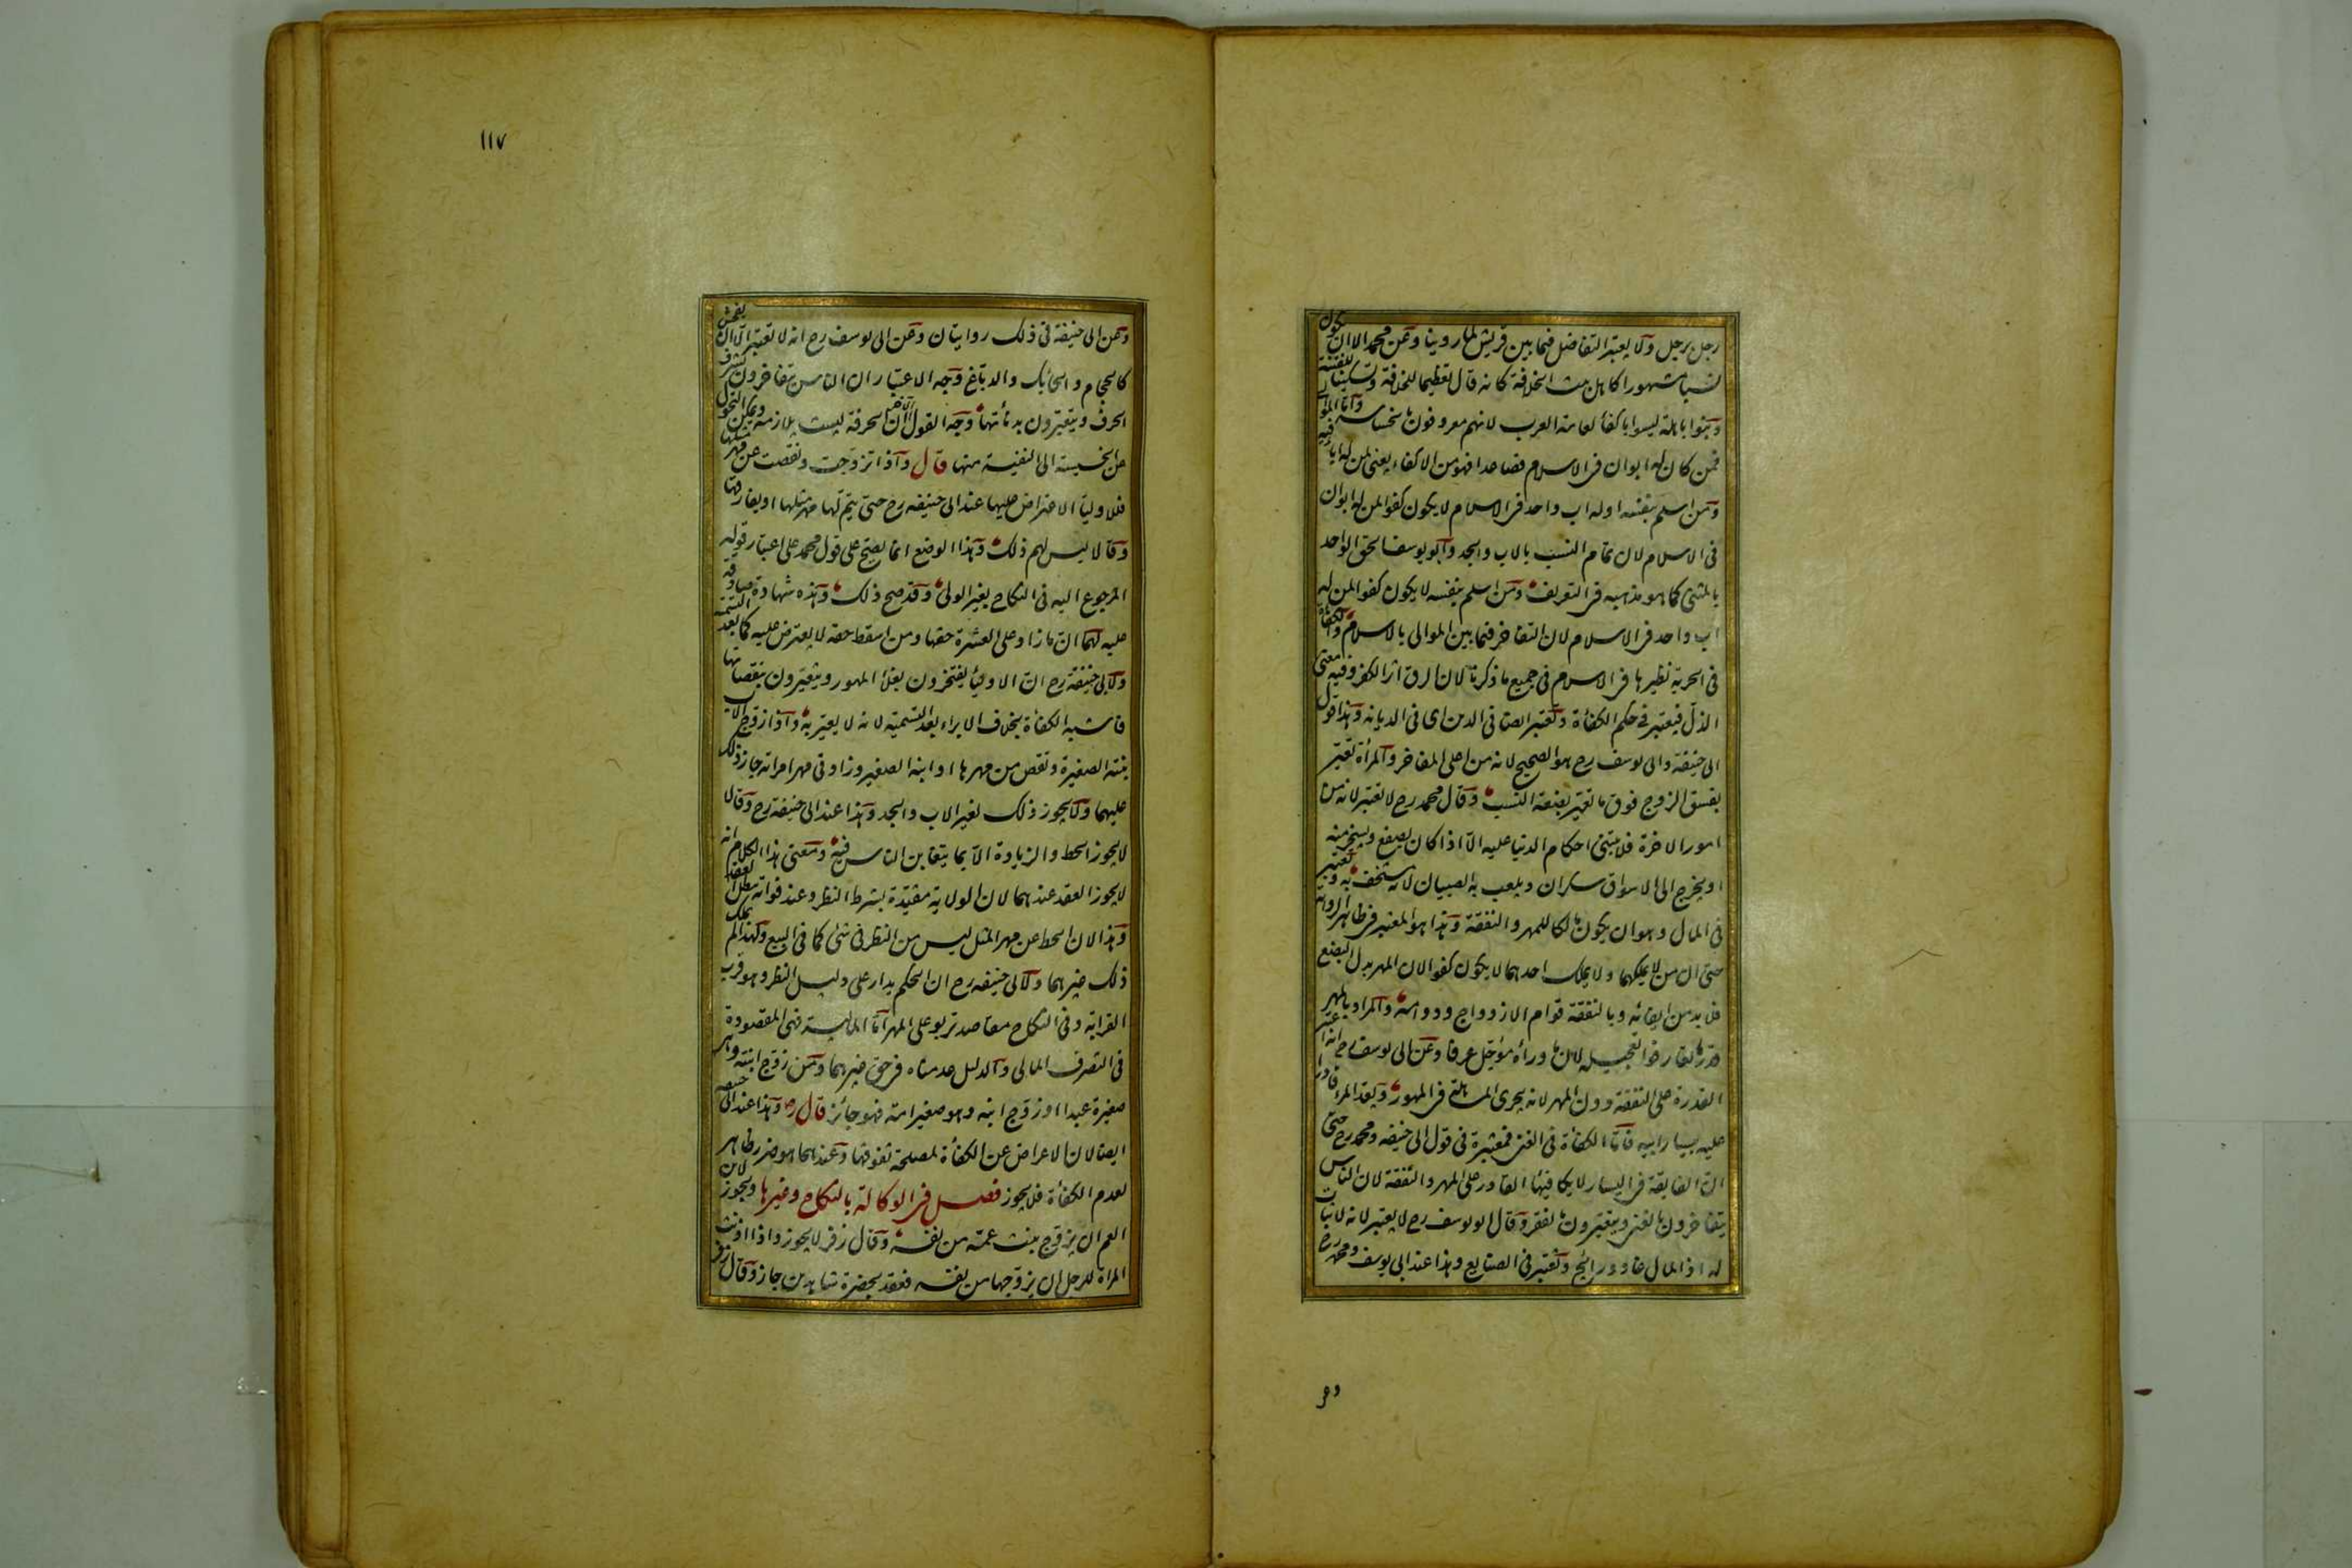 رجل برجل ولا يعتبر التفاضل فيما بين قريش لما روينا وعن محمد الا ان يكون
نسبا مشهورا كاهل بيت الخلافة كانه قال تعظيما للخلافة وتسكينا للفتنة
وبنوا باهلة ليسوا باكفأ لعامة العرب لانهم معروفون بالخساسة وأما الموالي
فمن كان له ابوان فى الاسلام فصاعدا فهو من الاكفاء يعنى لمن له اباء فيه
ومن اسلم بنفسه او له اب واحد فى الاسلام لا يكون كفوا لمن له ابوان
فى الاسلام لان تمام النسب بالاب والجد وابو يوسف الحق الواحد
بالمثنى كما هو مذهبه فى التعريف ومن اسلم بنفسه لا يكون كفوا لمن له
اب واحد فى الاسلام لان التفاخر فيما بين الموالى بالاسلام والكفأة
فى الحرية نظيرها فى الاسلام فى جميع ما ذكرنا لان الرق اثر الكفر وفيه معنى
الذل فيعتبر فى حكم الكفأة وتعتبر ايضا فى الدين اى فى الديانة وهذا قول
ابى حنيفة وابى يوسف رح هو الصحيح لانه من اعلى المفاخر والمرأة تعير
بفسق الزوج فوق ما تعير بضعة النسب وقال محمد رح لا تعتبر لانه من
امور الاخرة فلا يبتنى احكام الدنيا عليه الا اذا كان يصفع ويسخر منه
او يخرج الى الاسواق سكران ويلعب به الصبيان لانه مستخف به وتعتبر
فى المال وهو ان يكون مالكا للمهر والنفقة وهذا هو المعتبر فى ظاهر الرواية
حتى ان من لا يملكهما ولا يملك احدهما لا يكون كفوا لان المهر بدل البضع
فلا بد من ايفائه وبالنفقة قوام الازدواج ودوامه والمراد بالمهر
قدر ما تعارفوا تعجيله لان ما وراءه مؤجل عرفا وعن ابى يوسف رح انه اعتبر
القدرة على النفقة دون المهر لانه يجرى المساهلة فى المهور ويعد المرء قادرا
عليه بيسار ابيه فاما الكفأة فى الغنى فمعتبرة فى قول ابى حنيفه ومحمد رح حتى
ان الفايقة فى اليسار لا يكافيها القادر على المهر والنفقة لان الناس
يتفاخرون بالغنى ويتعيرون بالفقر وقال ابو يوسف رح لا يعتبر لانه لا ثبات
له اذ المال غاد ورائح وتعتبر فى الصنايع وهذا عند ابى يوسف ومحمد رح
وعن
١١٧
وعن ابى حنيفة فى ذلك روايتان وعن ابى يوسف رح انه لا تعتبر الا ان يفحش
كالحجام والحائك والدباغ وجه الاعتبار ان الناس يتفاخرون بشرف
الحرف ويتعيرون بدنأتها وجه القول الاخر ان الحرفة ليست بلازمة ويمكن التحول
عن الخسيسة الى النفيسة منها قال واذا تزوجت ونقصت عن مهر مثلها
فللاوليأ الاعتراض عليها عند ابى حنيفه رح حتى يتم لها مهر مثلها او يفارقها
وقالا ليس لهم ذلك وهذا الوضع انما يصح على قول محمد على اعتبار قوله
المرجوع اليه فى النكاح بغير الولى وقد صح ذلك وهذه شهادة صادقة
عليه لهما ان ما زاد على العشرة حقها ومن اسقط حقه لا يعترض عليه كما بعد التسمية
ولابى حنيفة رح ان الاوليأ يفتخرون بغلأ المهور ويتعيرون بنقصانها
فاشبه الكفأة بخلاف الابراء بعد التسمية لانه لا يعير به واذا زوج الاب
بنته الصغيرة ونقص من مهرها او ابنه الصغير وزاد فى مهر امرأته جاز ذلك
عليهما ولا يجوز ذلك لغير الاب والجد وهذا عند ابى حنيفة رح وقالا
لا يجوز الحط والزيادة الا بما يتغابن الناس فيه ومعنى هذا الكلام انه
لا يجوز العقد عندهما لان الولاية مقيدة بشرط النظر وعند فواته يبطل العقد
وهذا لان الحط عن مهر المثل ليس من النظر فى شئ كما فى البيع ولهذا لم يملك
ذلك غيرهما ولابى حنيفه رح ان الحكم يدار على دليل النظر وهو قرب
القرابة وفى النكاح مقاصد تربو على المهر اما المالية فهى المقصودة
فى التصرف المالى والدليل عدمناه فى حق غيرهما ومن زوج ابنته وهى
صغيرة عبدا او زوج ابنه وهو صغير امة فهو جائز قال رض وهذا عند ابى حنيفه
ايضا لان الاعراض عن الكفأة لمصلحة تفوقها وعندهما هو ضرر ظاهر
لعدم الكفأة فلا يجوز فصل فى الوكالة بالنكاح وغيرها ويجوز لابن
العم ان يزوج بنت عمه من نفسه وقال زفر لا يجوز واذا اذنت
المرأة للرجل ان يزوجها من نفسه فعقد بحضرة شاهدين جاز وقال زفر